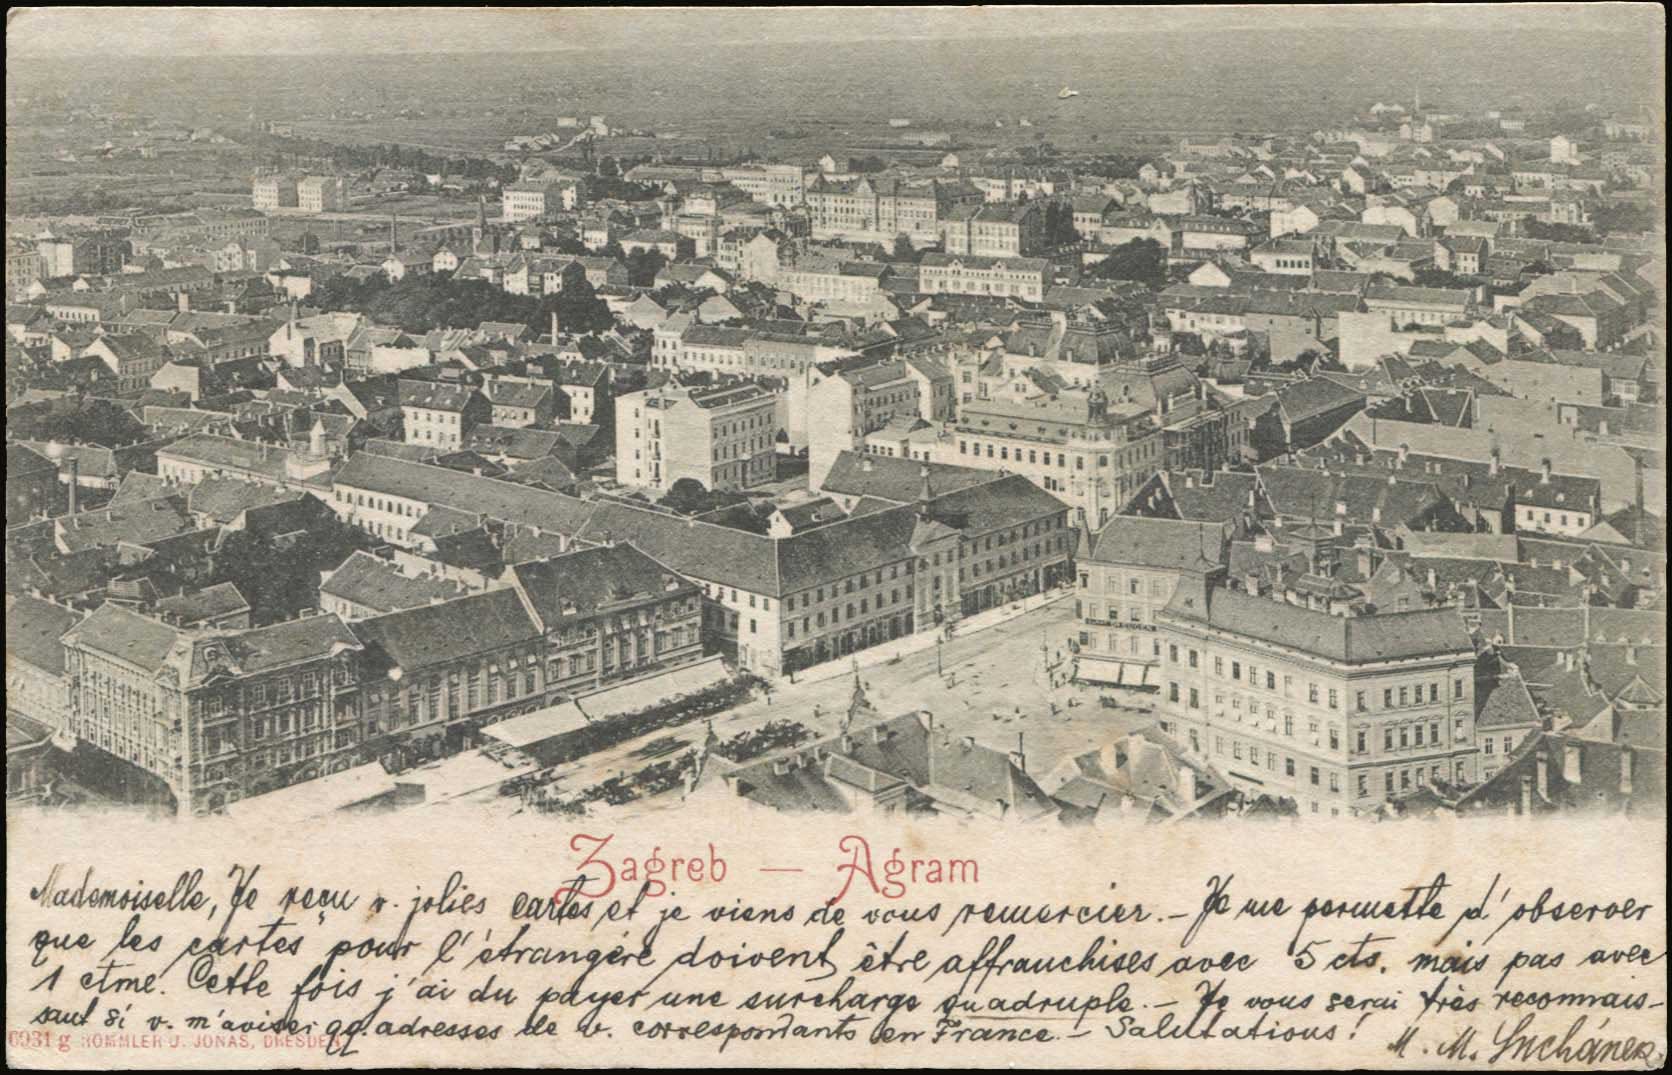 Zagreb — Agram
Mademoiselle, Je reçu v. jolies cartes et je viens de vous remercier. - Je me permette d'observer
que les cartes pour l'étrangère doivent être affranchises avec 5 cts. mais pas avec
1 ctme. Cette fois j'ai du payer une surcharge quadruple. - Je vous serai très reconnais-
saut si v. m'aviser qq. adresses de v. correspondants en France. - Salutations!
M. M. Suchánek
6931 g RÖMMLER U. JONAS, DRESDEN